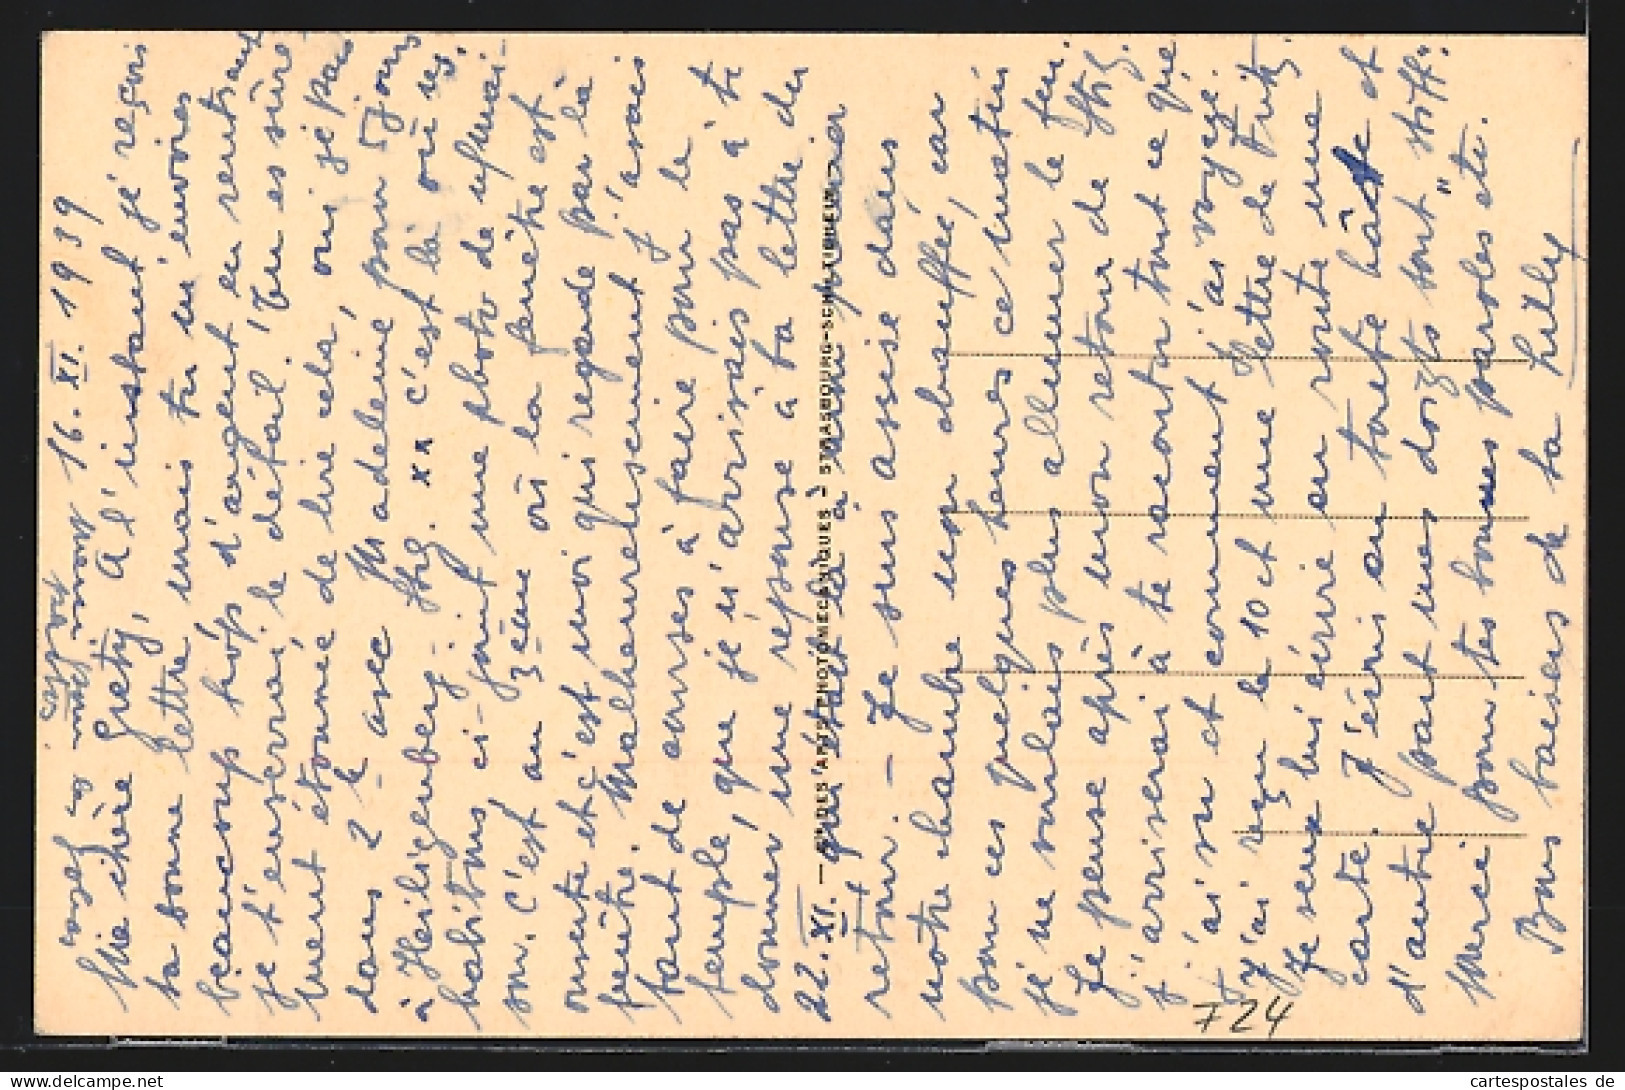 16. XI. 1939
Ma chère Grety, A l'instant je reçois
ta bonne lettre mais tu m'envoies
beaucoup trop d'argent en rentrant
je t'enverrai le détail. Tu es sûre-
ment étonnée de lire cela, oui je pars
dans 2 h avec Madeleine pour 5 jours
à Heiligenberg. Stbg. xx c'est là où ns.
habitons, ci-joint une photo de sa mai-
son. C'est au 3ème où la fenêtre est
ouverte et c'est moi qui regarde par là
fenêtre. Malheureusement j'avais
tant de courses à faire pour le
temple, que je n'arrivais pas à te
donner une réponse à ta lettre du
22. XI. qui était là à mon premier
retour. — Je suis assise dans
notre chambre non chauffée, car
pour ces quelques heures ce matin
je ne voulais plus allumer le feu.
Je pense après mon retour de Stbg.
j'arriverai à te raconter tout ce que
j'ai vu et comment j'ai voyagé.
J'ai reçu le 10 et une lettre de Fritz.
Je veux lui écrire en route une
carte. J'écris en toute hâte et
d'autre part mes doigts sont "stiff".
Merci pour tes bonnes paroles etc.
Bons baisers de ta Lilly
— ANDES ARTS PHOTOMECANIQUES – STRASBOURG-SCHILTIGHEIM —
724
cartespostales de